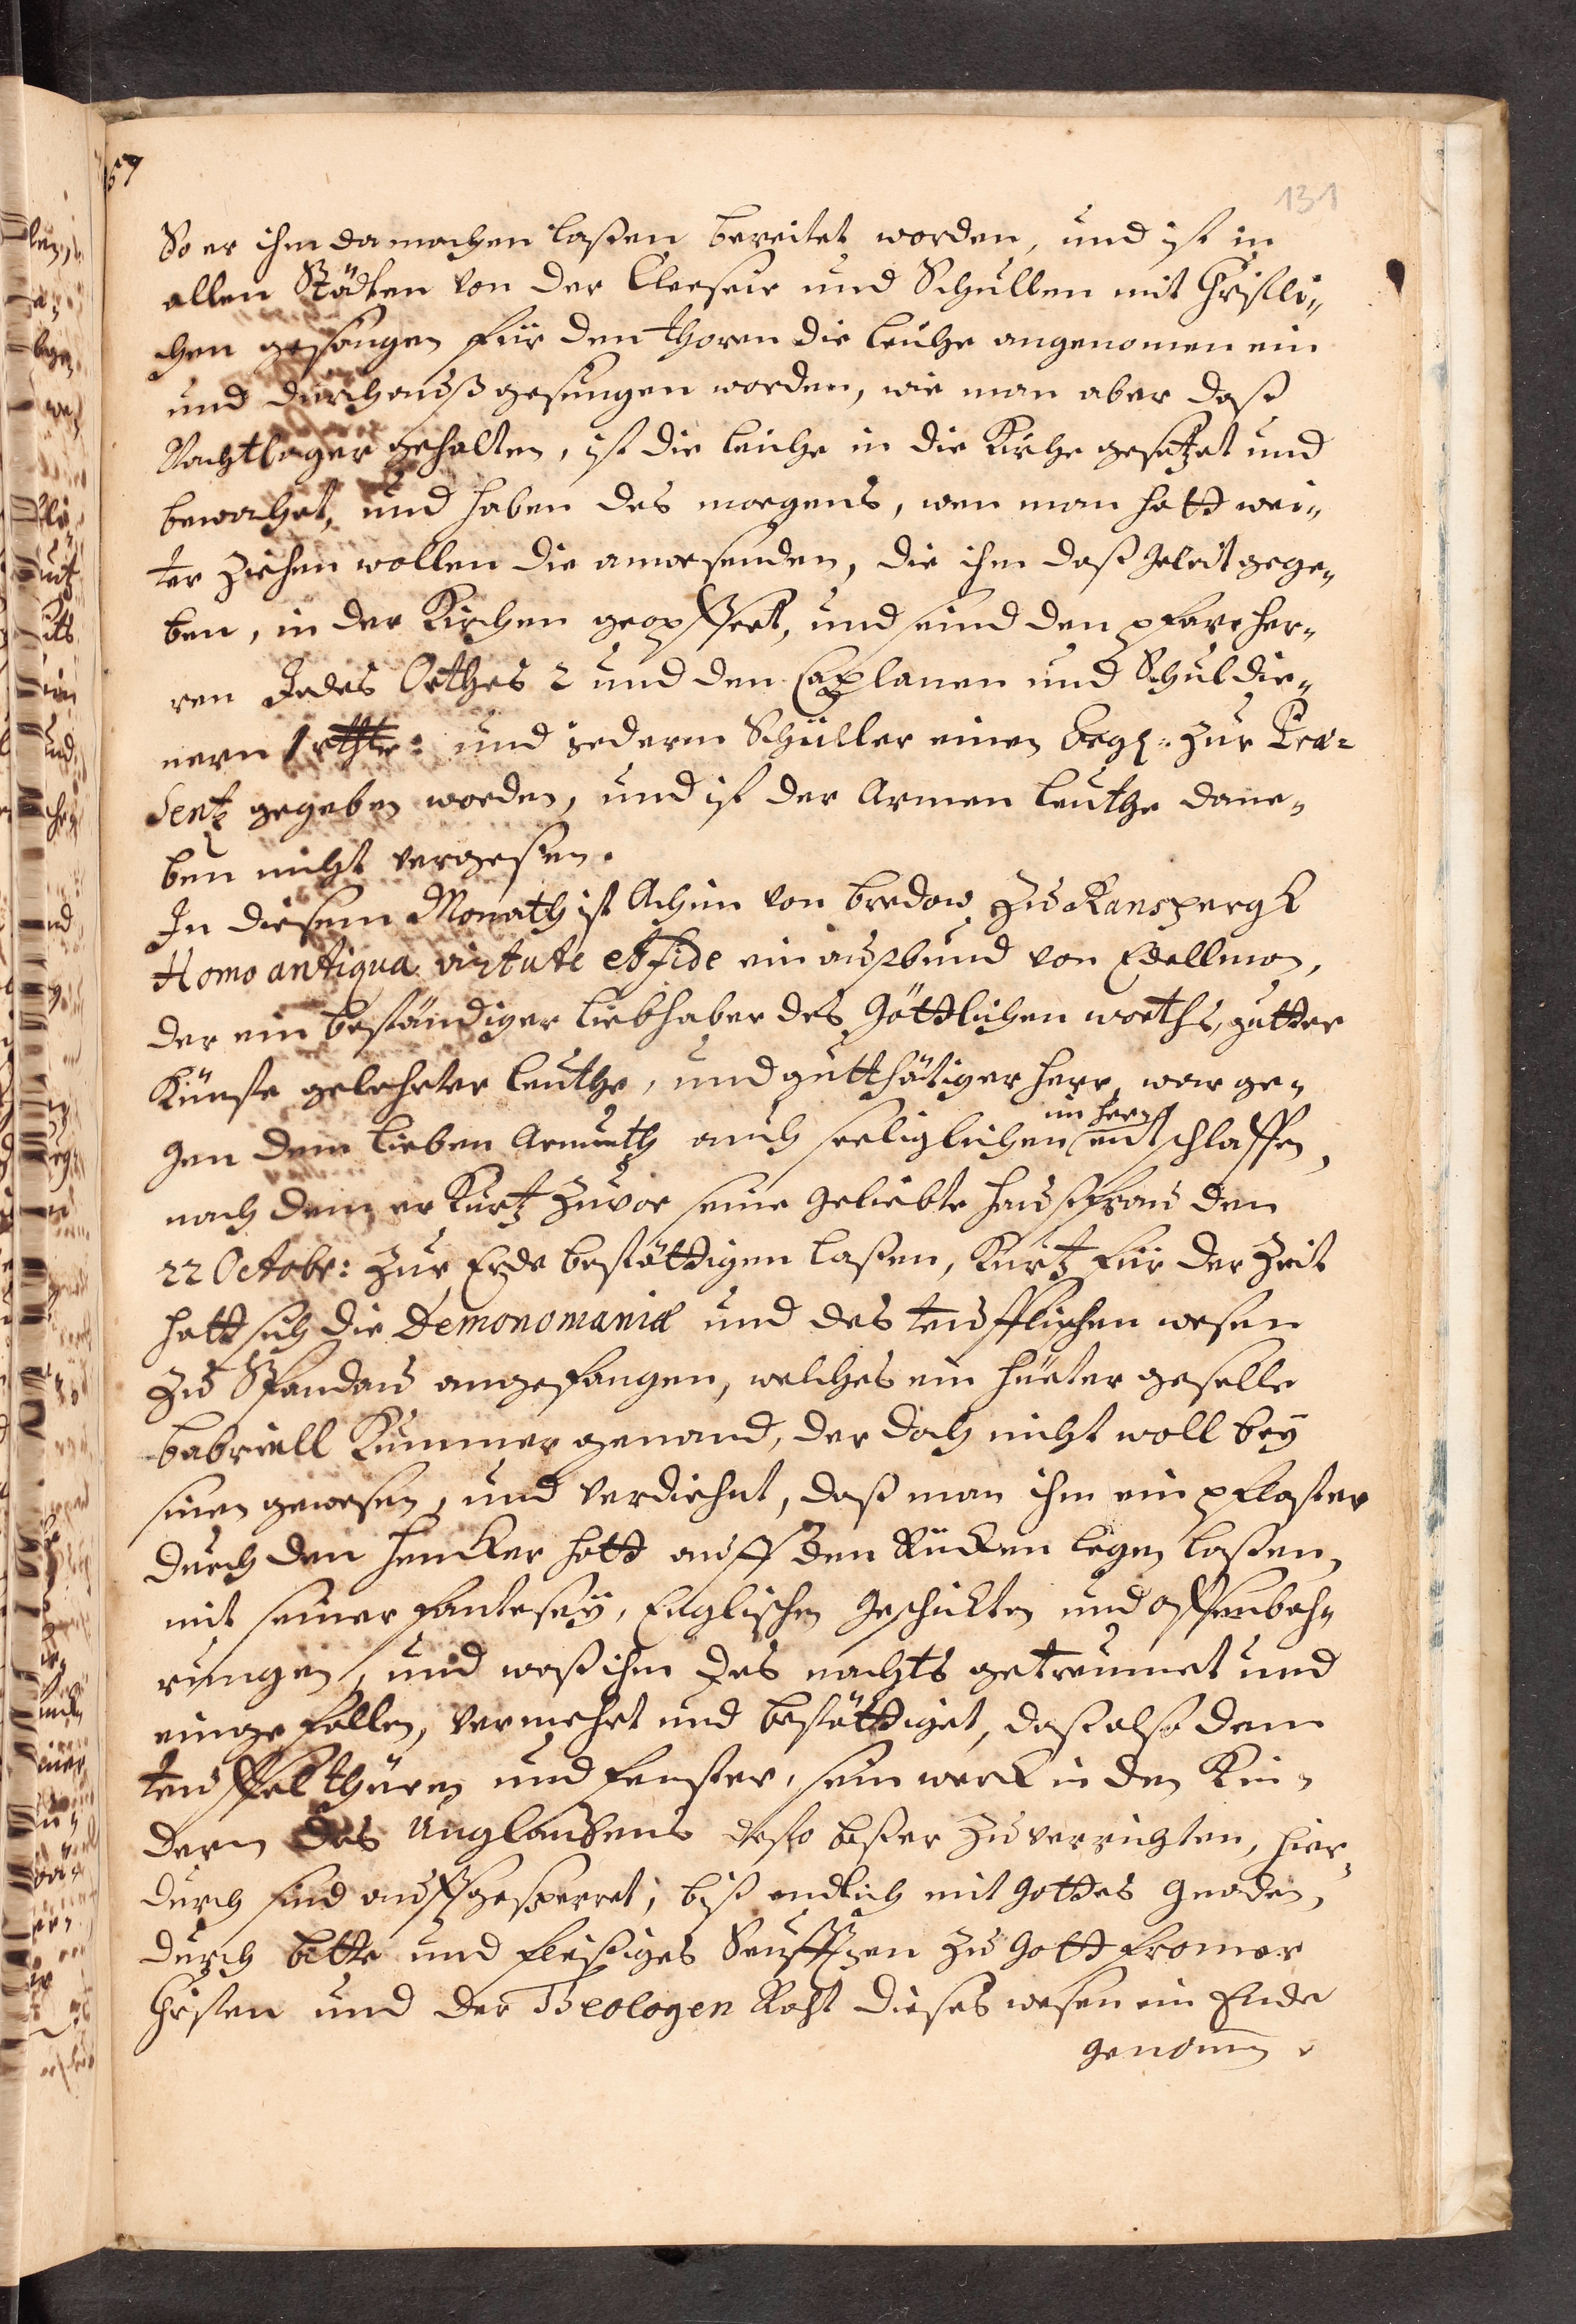 131
So er ihm da machen laßen bereitet worden, und ist in
allen Städten von der Cleresie und Schullen mit Christli„
chen gesangen für den thoren die leiche angenomen ein
und durchauß gesungen worden, wie man aber daß
Nachtlager gehalten, ist die leiche in die Kirche gesetzet und
bewachet, und haben des morgens, wen man hatt wei„
ter ziehen wollen die anwesenden, die ihm daß geleit gege„
ben, in der Kirchen geopffert, und sind den pfarrher„
ren Jedes Orthes 2 und den Caplanen und Schuldie„
nern 1 rthlr: und jederm Schüller einen zur Præ=
sentz gegeben worden, und ist der Armen leuthe dane„
ben nicht vergeßen.
In diesem Monath ist Achim von bredow zu Ranspergk
Homo antiqua virtute et fide ein außbund von Edellman,
der ein beständiger liebhaber des Göttlichen worths, gutter
Künste gelehrter leuthe, und gutthätiger herr, war ge„
im hern
gen dem lieben Armuth auch seeliglichen entschlaffen,
nach dem er Kurtz zuvor seine geliebte haußfrau den
22 Octobr: zur Erde bestättigen laßen, Kurtz für der Zeit
hatt sich die Demonomaniæ und des teufflischen wesen
zu Spandau angefangen, welches ein hüeter geselle
Gabriell Kummer genand, der doch nicht woll bey
sinen gewesen, und verdiehnt, daß man ihm ein pflaster
durch den hencker hatt auff den Rücken legen laßen,
mit seiner fantesey, Englischen geschichten und offenbah„
rungen, und waß ihm des nachts getreumet und
eingefallen, vermehrt und bestättiget, daß also dem
teuffel thüren und fenster, sein werck in den Kin„
dern des Unglaubens desto beßer zu verrichten, hier„
durch sind auffgesperret, biß endlich mit Gottes gnaden,
durch bitte und fleißiges Seufftzen zu Gott fromer
Christen und der Theologen Raht dieses wesen ein Ende
genomen